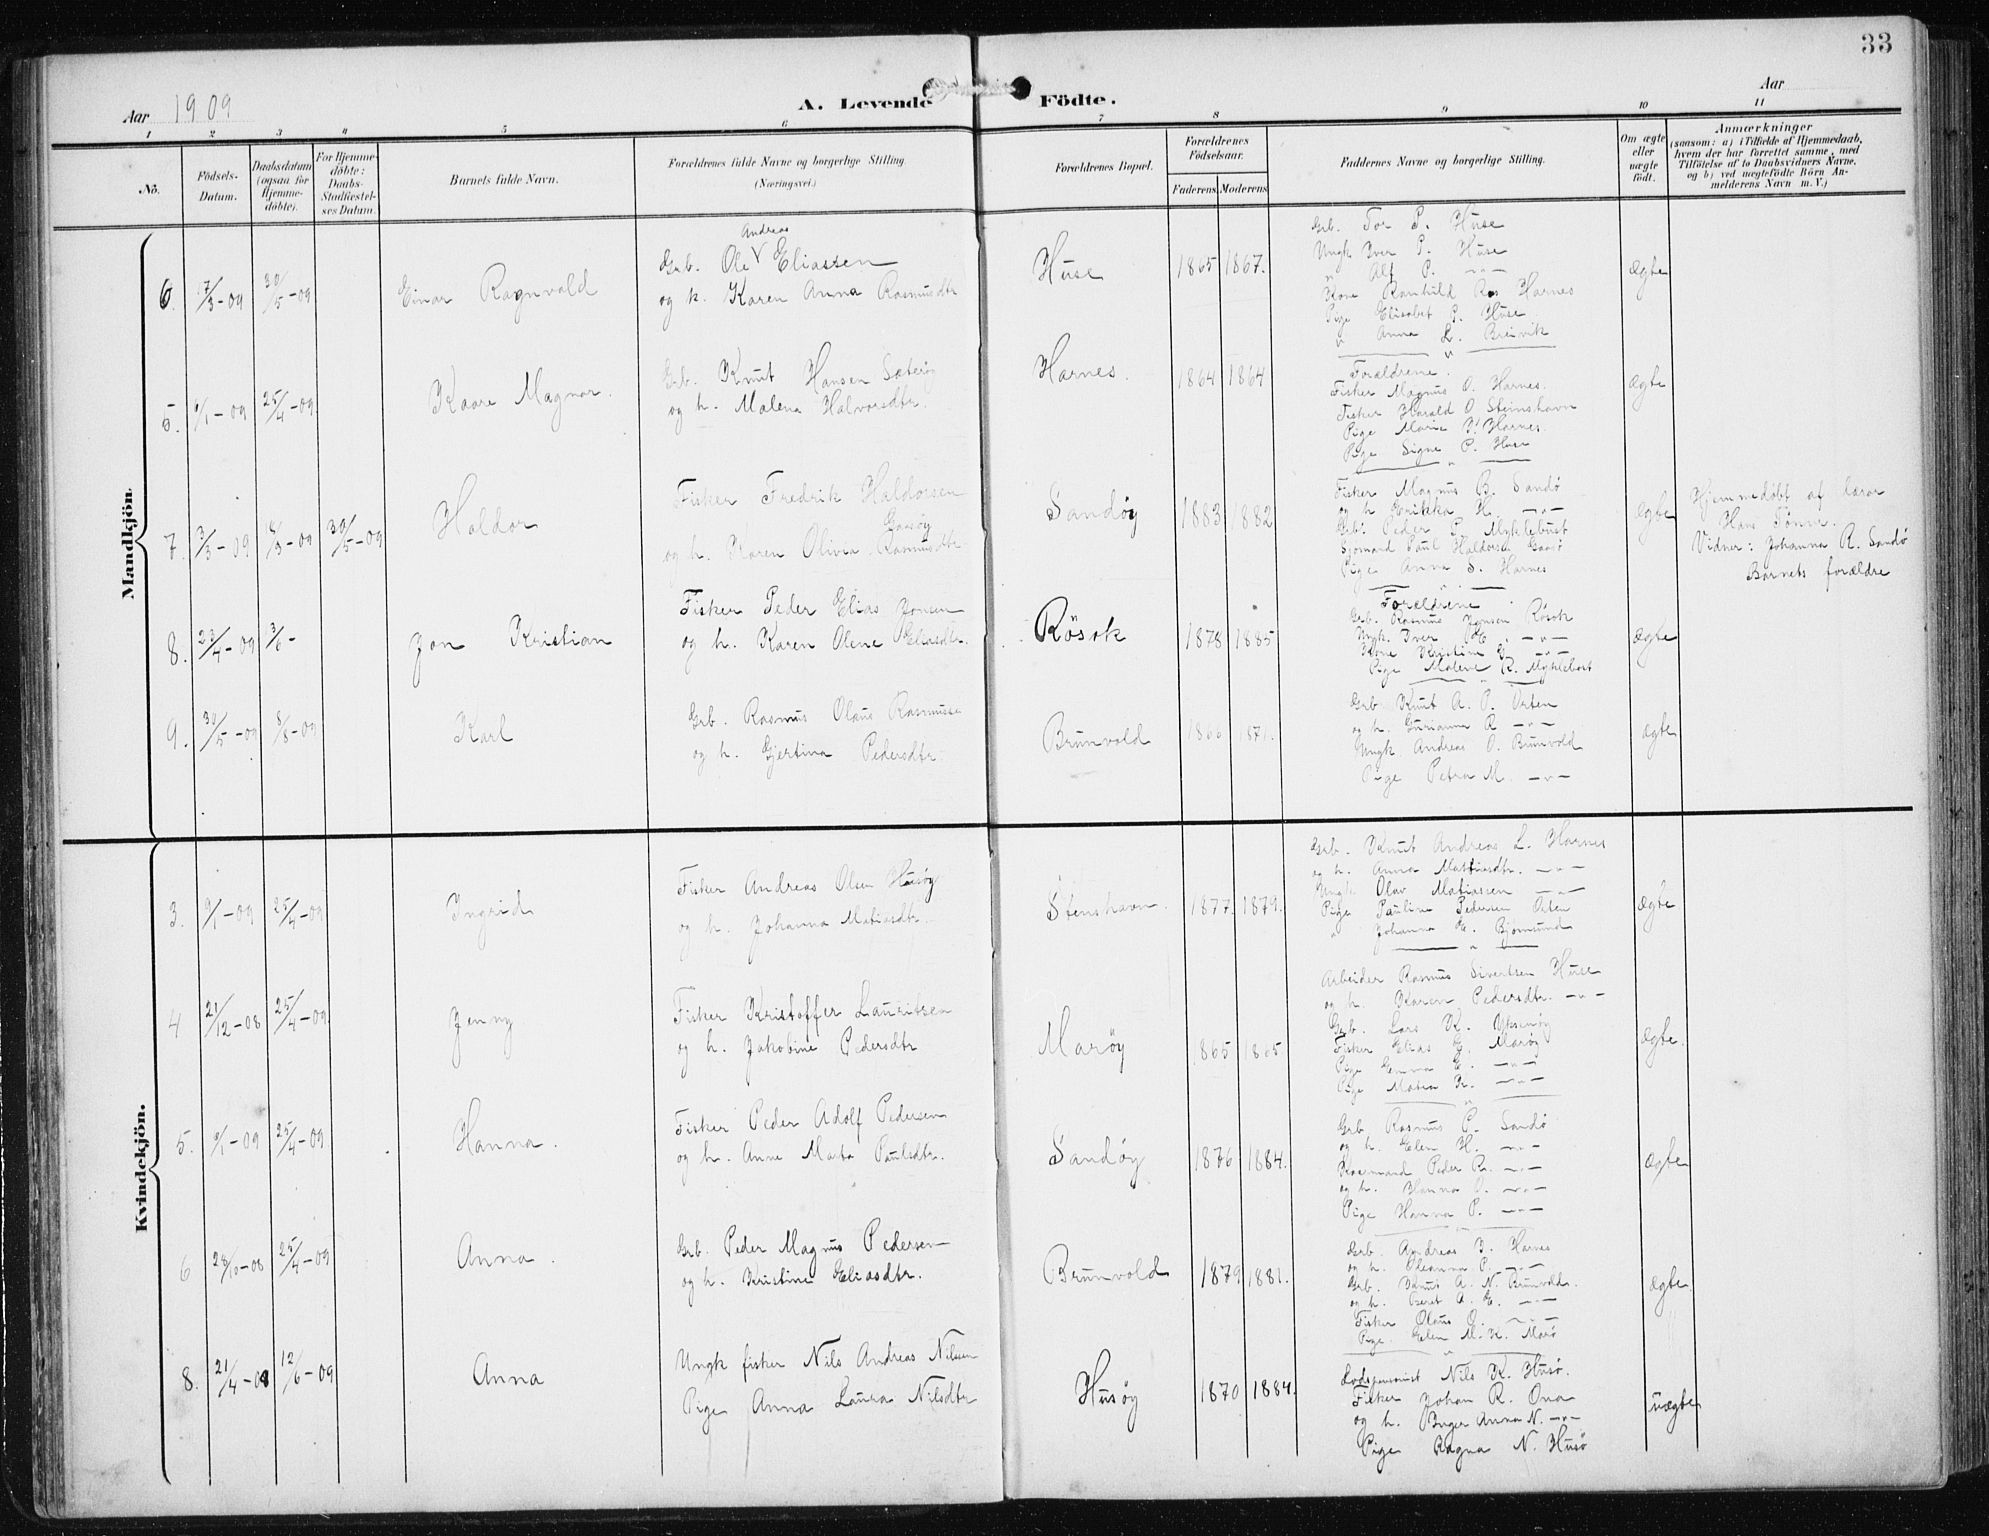 33
Aar 1909
A. Levende Födte.
Aar
1 2 3 4 5 6 7 8 9 10 11
No.
Födsels-Datum.
Daabsdatum (ogsaa for Hjemme-döbte).
For Hjemme-döbte: Daabs-Stadfæstel-ses Datum.
Barnets fulde Navn.
Forældrenes fulde Navne og borgerlige Stilling. (Næringsvei.)
Forældrenes Bopæl.
Forældrenes Födselsaar.
Faderens Moderens
Faddernes Navne og borgerlige Stilling.
Om ægte eller uægte födt.
Anmærkninger
(saasom: a) i Tilfælde af Hjemmedaab,
hvem der har forrettet samme, med
Tilföielse af to Daabsvidners Navne.
og b) ved uægtefödte Börn An-
melderens Navn m. V.)
Mandkjön.
6. 17/3-09 30/5-09 Einar Ragnvald
Andreas
Grb. Ole V Eliassen
og h. Karen Anna Rasmusdtr
Huse 1865 1867.
Grb. Tor P. Huse
Ungk Iver P. Huse
" Alf P. -"-
Kone Ranhild Ras Harnes
Pige Elisabet P. Huse
" Anna L. Breivik
ægte
5. 9/1-09 25/4-09 Kaare Magnar.
Grb. Knut Hansen Sæterøy
og h. Malena Halvorsdtr.
Harnes. 1864 1864
Forældrene.
Fisker Magnus O. Harnes.
Fisker Harald O Steinshavn
Pige Marie K. Harnes.
Pige Signe P. Huse
ægte
7. 3/3-09 8/3-09 30/5-09 Haldor
Fisker Fredrik Haldorsen
Gaasøy
og h. Karen Olivia Rasmusdtr
Sandøy 1883 1882
Fisker Magnus B. Sandø
og h Erikka H. -"-
Grb. Peder P. Myklebust
Sjømand Paul Haldorsen Gaasø
Pige Anna S. Harnes
ægte
Hjemmedøbt af lærer
Hans Tønne.
Vidner: Johanna R. Sandø
Barnets forældre
8. 23/4-09 3/6- Jon Kristian
Fisker Peder Elias Jonsen
og h. Karen Olene Eliasdtr.
Røsok 1878 1885
Forældrene
Grb. Rasmus Jonsen Røsok
Ungk. Iver E. -"-
Kone Kristine E. -"-
Pige Malene R. Myklebost
ægte
9. 30/5-09 8/8-09 Karl
Grb. Rasmus Olaus Rasmusse
og h. Gjertina Pedersdtr.
Brunvold 1866 1871.
Grb Knut A. P. Orten
og h. Gurianna R -"-
Ungk. Andreas O. Brunvold
Pige Petra M. -"-
ægte
Kvindekjön.
3. 9/1-09 25/4-09 Ingrid
Fisker Andreas Olsen Husøy
og h. Johanna Matiasdtr.
Stenshavn. 1877. 1879.
Grb. Knut Andreas L. Harnes
og h. Anna Mattiasdtr. -"-
Ungk Olav Matiassen -"-
Pige Pauline Pedersen Orten
" Johanna E. Bjørnsund
ægte
4 21/12-08 25/4-09. Jenny
Fisker Kristoffer Lauritsen
og h. Jakobine Pedersdtr
Marøy 1865 1865
Arbeider Rasmus Sivertsen Huse
og h. Karen Pedersdtr. -"-
Grb. Lars K. Uksnøy
Fisker Elias E. Marøy
Pige Emma E. -"-
Pige Matea K. -"-
ægte.
5. 9/1-09 25/4-09 Hanna.
Fisker Peder Adolf Pedersen
og h. Anne Marta Paulsdtr.
Sandøy 1876 1884.
Grb Rasmus P. Sandø
og h. Elen H. -"-
Peder R. -"-
og h. Hanna O. -"-
Pige Hanna P. -"-
ægte
6 28/10-08 25/4-09 Anna.
Grb. Peder Magnus Pedersen
og h. Kristine Eliasdtr.
Brunvold 1879 1881.
Grb. Andreas J. Harnes
og h. Oleanna P. -"-
Grb. Knut A. N. Brunvold.
og h. Beret A. E. -"-
Fisker Olaus O. -"-
Pige. Elen M. K. Marø
ægte
8. 21/4-08 12/6-09 Anna
Ungk fisker Nils Andreas Nilsen
Pige Anna Laura Nilsdtr
Husøy 1870 1884.
Lodspensionist Nils K. Husø.
Fisker Johan R. Ona
og h. Inger Anna N. -"-
Pige Ragna N. Husø
uægte